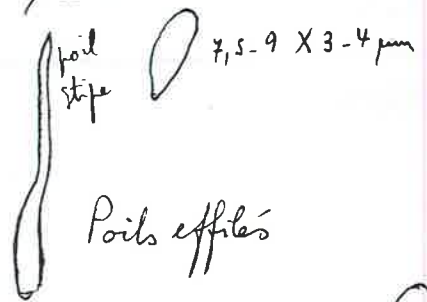 poil
stipe
7,5-9 X 3-4 µm
Poils effilés